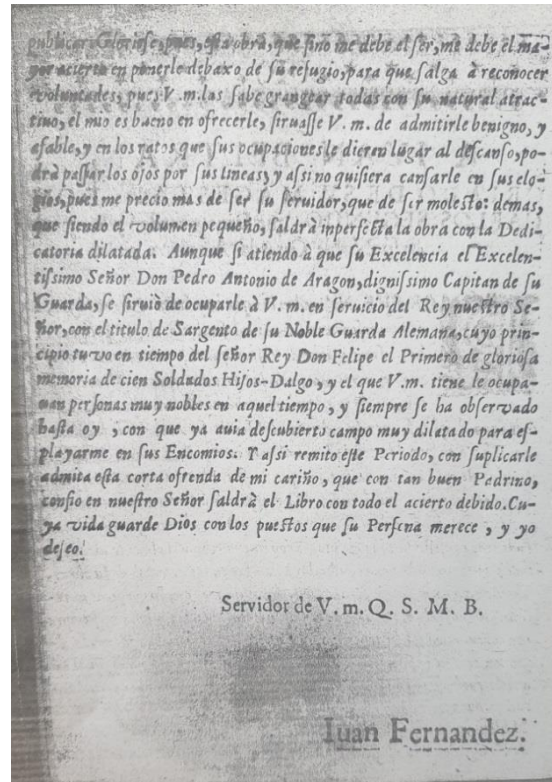 publicar. Gloriese, pues, esta obra, que sino me debe el ser, me debe el ma-
yor acierto en ponerle debaxo de su refugio, para que salga à reconocer
voluntades, pues V. m. las sabe grangear todas con su natural atrac-
tiuo, el mio es bueno en ofrecerle, siruasse V. m. de admitirle benigno, y
afable, y en los ratos que sus ocupaciones le dieren lugar al descanso, po-
drà passar los ojos por sus lineas, y assi no quisiera cansarle en sus elo-
gios, pues me precio mas de ser su seruidor, que de ser molesto: demas,
que siendo el volumen pequeño, saldrà inperfecta la obra con la Dedi-
catoria dilatada. Aunque si atiendo à que su Excelencia el Excelen-
tissimo Señor Don Pedro Antonio de Aragon, dignissimo Capitan de su
Guarda, se siruiò de ocuparle à V. m. en seruicio del Rey nuestro Se-
ñor, con el titulo de Sargento de su Noble Guarda Alemana, cuyo prin-
cipio tuvo en tiempo del señor Rey Don Felipe el Primero de gloriosa
memoria de cien Soldados Hijos-Dalgo, y el que V. m. tiene le ocupa-
uan personas muy nobles en aquel tiempo, y siempre se ha observado
hasta oy, con que ya auia descubierto campo muy dilatado para es-
playarme en sus Encomios. Y assi remito este Periodo, con suplicarle
admita esta corta ofrenda de mi cariño, que con tan buen Padrino,
confio en nuestro Señor saldrà el Libro con todo el acierto debido. Cu-
ya vida guarde Dios con los puestos que su Persona merece, y yo
deseo.
Servidor de V. m. Q. S. M. B.
Iuan Fernandez.